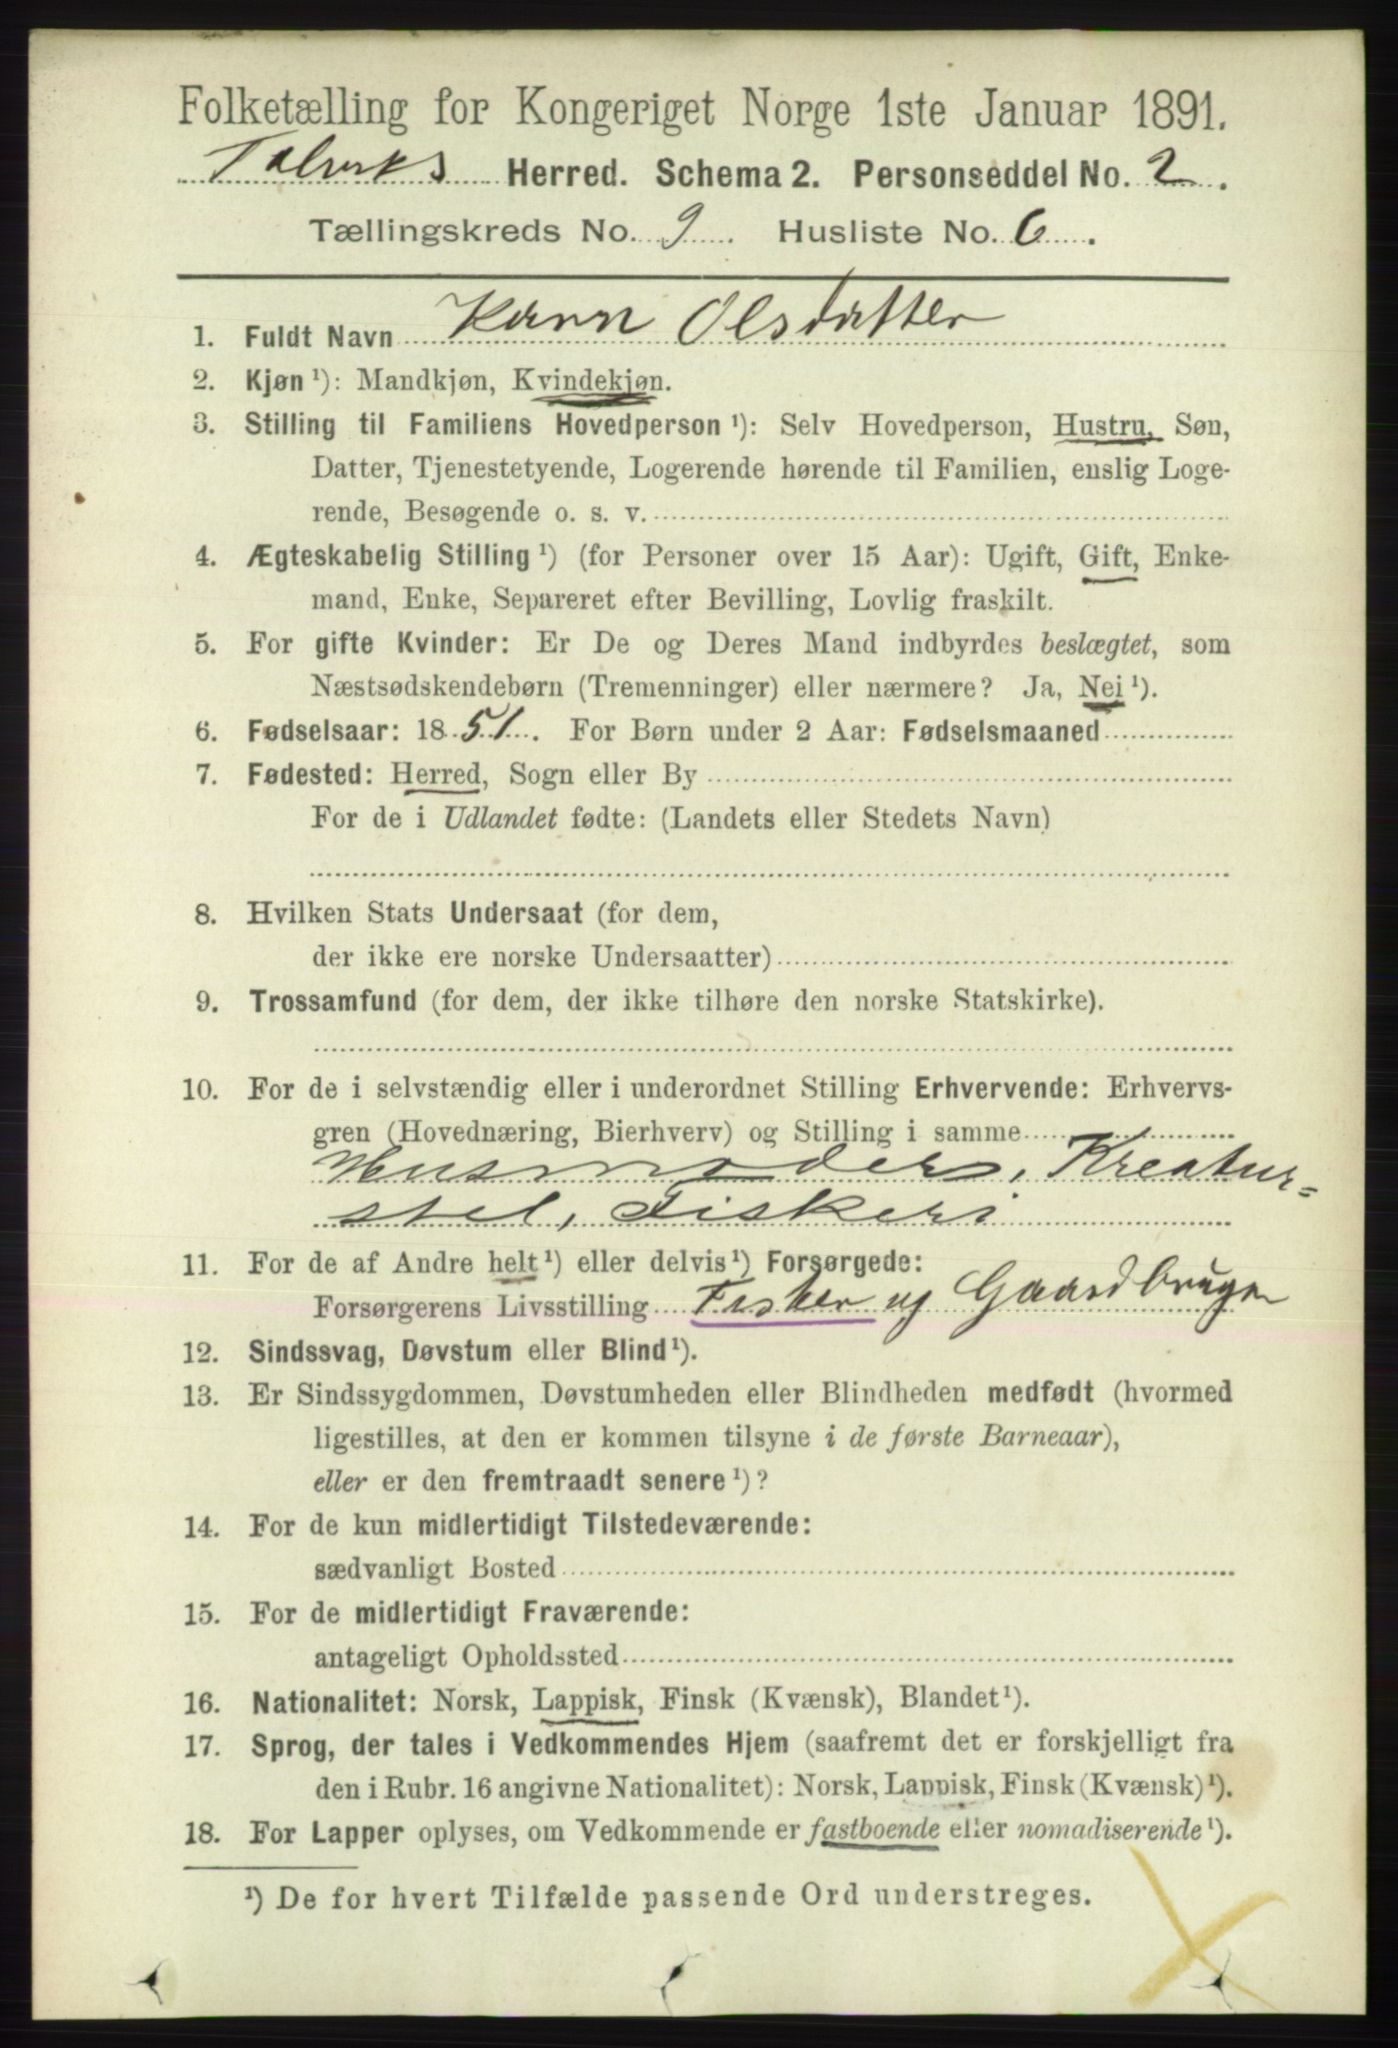 Folketælling for Kongeriget Norge 1ste Januar 1891.
Talviks Herred. Schema 2. Personseddel No. 2.
Tællingskreds No. 9. Husliste No. 6.
1. Fuldt Navn Karen Olsdatter
2. Kjøn ¹): Mandkjøn, Kvindekjøn.
3. Stilling til Familiens Hovedperson ¹): Selv Hovedperson, Hustru, Søn,
Datter, Tjenestetyende, Logerende hørende til Familien, enslig Loge-
rende, Besøgende o. s. v.
4. Ægteskabelig Stilling ¹) (for Personer over 15 Aar): Ugift, Gift, Enke-
mand, Enke, Separeret efter Bevilling, Lovlig fraskilt.
5. For gifte Kvinder: Er De og Deres Mand indbyrdes beslægtet, som
Næstsødskendebørn (Tremenninger) eller nærmere? Ja, Nei ¹).
6. Fødselsaar: 1851. For Børn under 2 Aar: Fødselsmaaned
7. Fødested: Herred, Sogn eller By
For de i Udlandet fødte: (Landets eller Stedets Navn)
8. Hvilken Stats Undersaat (for dem,
der ikke ere norske Undersaatter)
9. Trossamfund (for dem, der ikke tilhøre den norske Statskirke).
10. For de i selvstændig eller i underordnet Stilling Erhvervende: Erhvervs-
gren (Hovednæring, Bierhverv) og Stilling i samme
Husmoders, Kreatur-
stel, Fiskeri
11. For de af Andre helt ¹) eller delvis ¹) Forsørgede:
Forsørgerens Livsstilling Fisker og Gaardbruger
12. Sindssvag, Døvstum eller Blind ¹).
13. Er Sindssygdommen, Døvstumheden eller Blindheden medfødt (hvormed
ligestilles, at den er kommen tilsyne i de første Barneaar),
eller er den fremtraadt senere ¹)?
14. For de kun midlertidigt Tilstedeværende:
sædvanligt Bosted
15. For de midlertidigt Fraværende:
antageligt Opholdssted
16. Nationalitet: Norsk, Lappisk, Finsk (Kvænsk), Blandet ¹).
17. Sprog, der tales i Vedkommendes Hjem (saafremt det er forskjelligt fra
den i Rubr. 16 angivne Nationalitet): Norsk, Lappisk, Finsk (Kvænsk) ¹).
18. For Lapper oplyses, om Vedkommende er fastboende eller nomadiserende ¹).
¹) De for hvert Tilfælde passende Ord understreges.